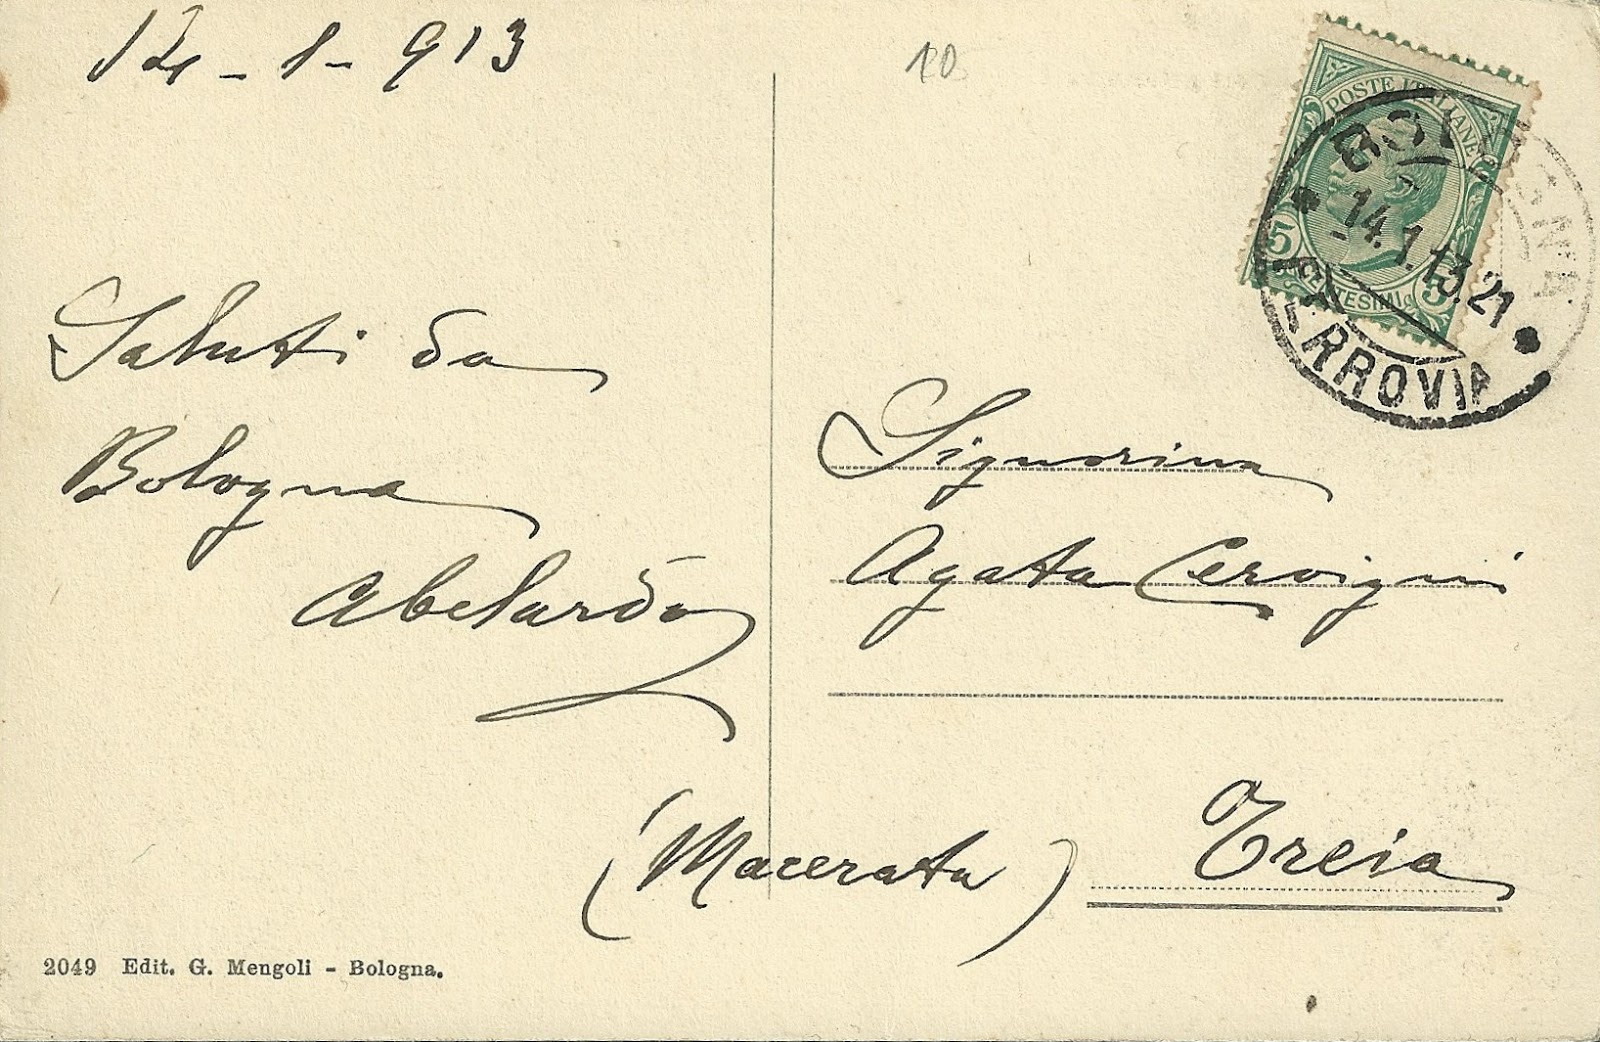 14-1-913
20
POSTE ITALIANE
5 CENTESIMI 5
BOLOGNA
14.1.13.21
FERROVIA
Saluti da
Bologna
Abelardo
Signorina
Agata Cervigni
(Macerata) Treia
2049 Edit. G. Mengoli - Bologna.